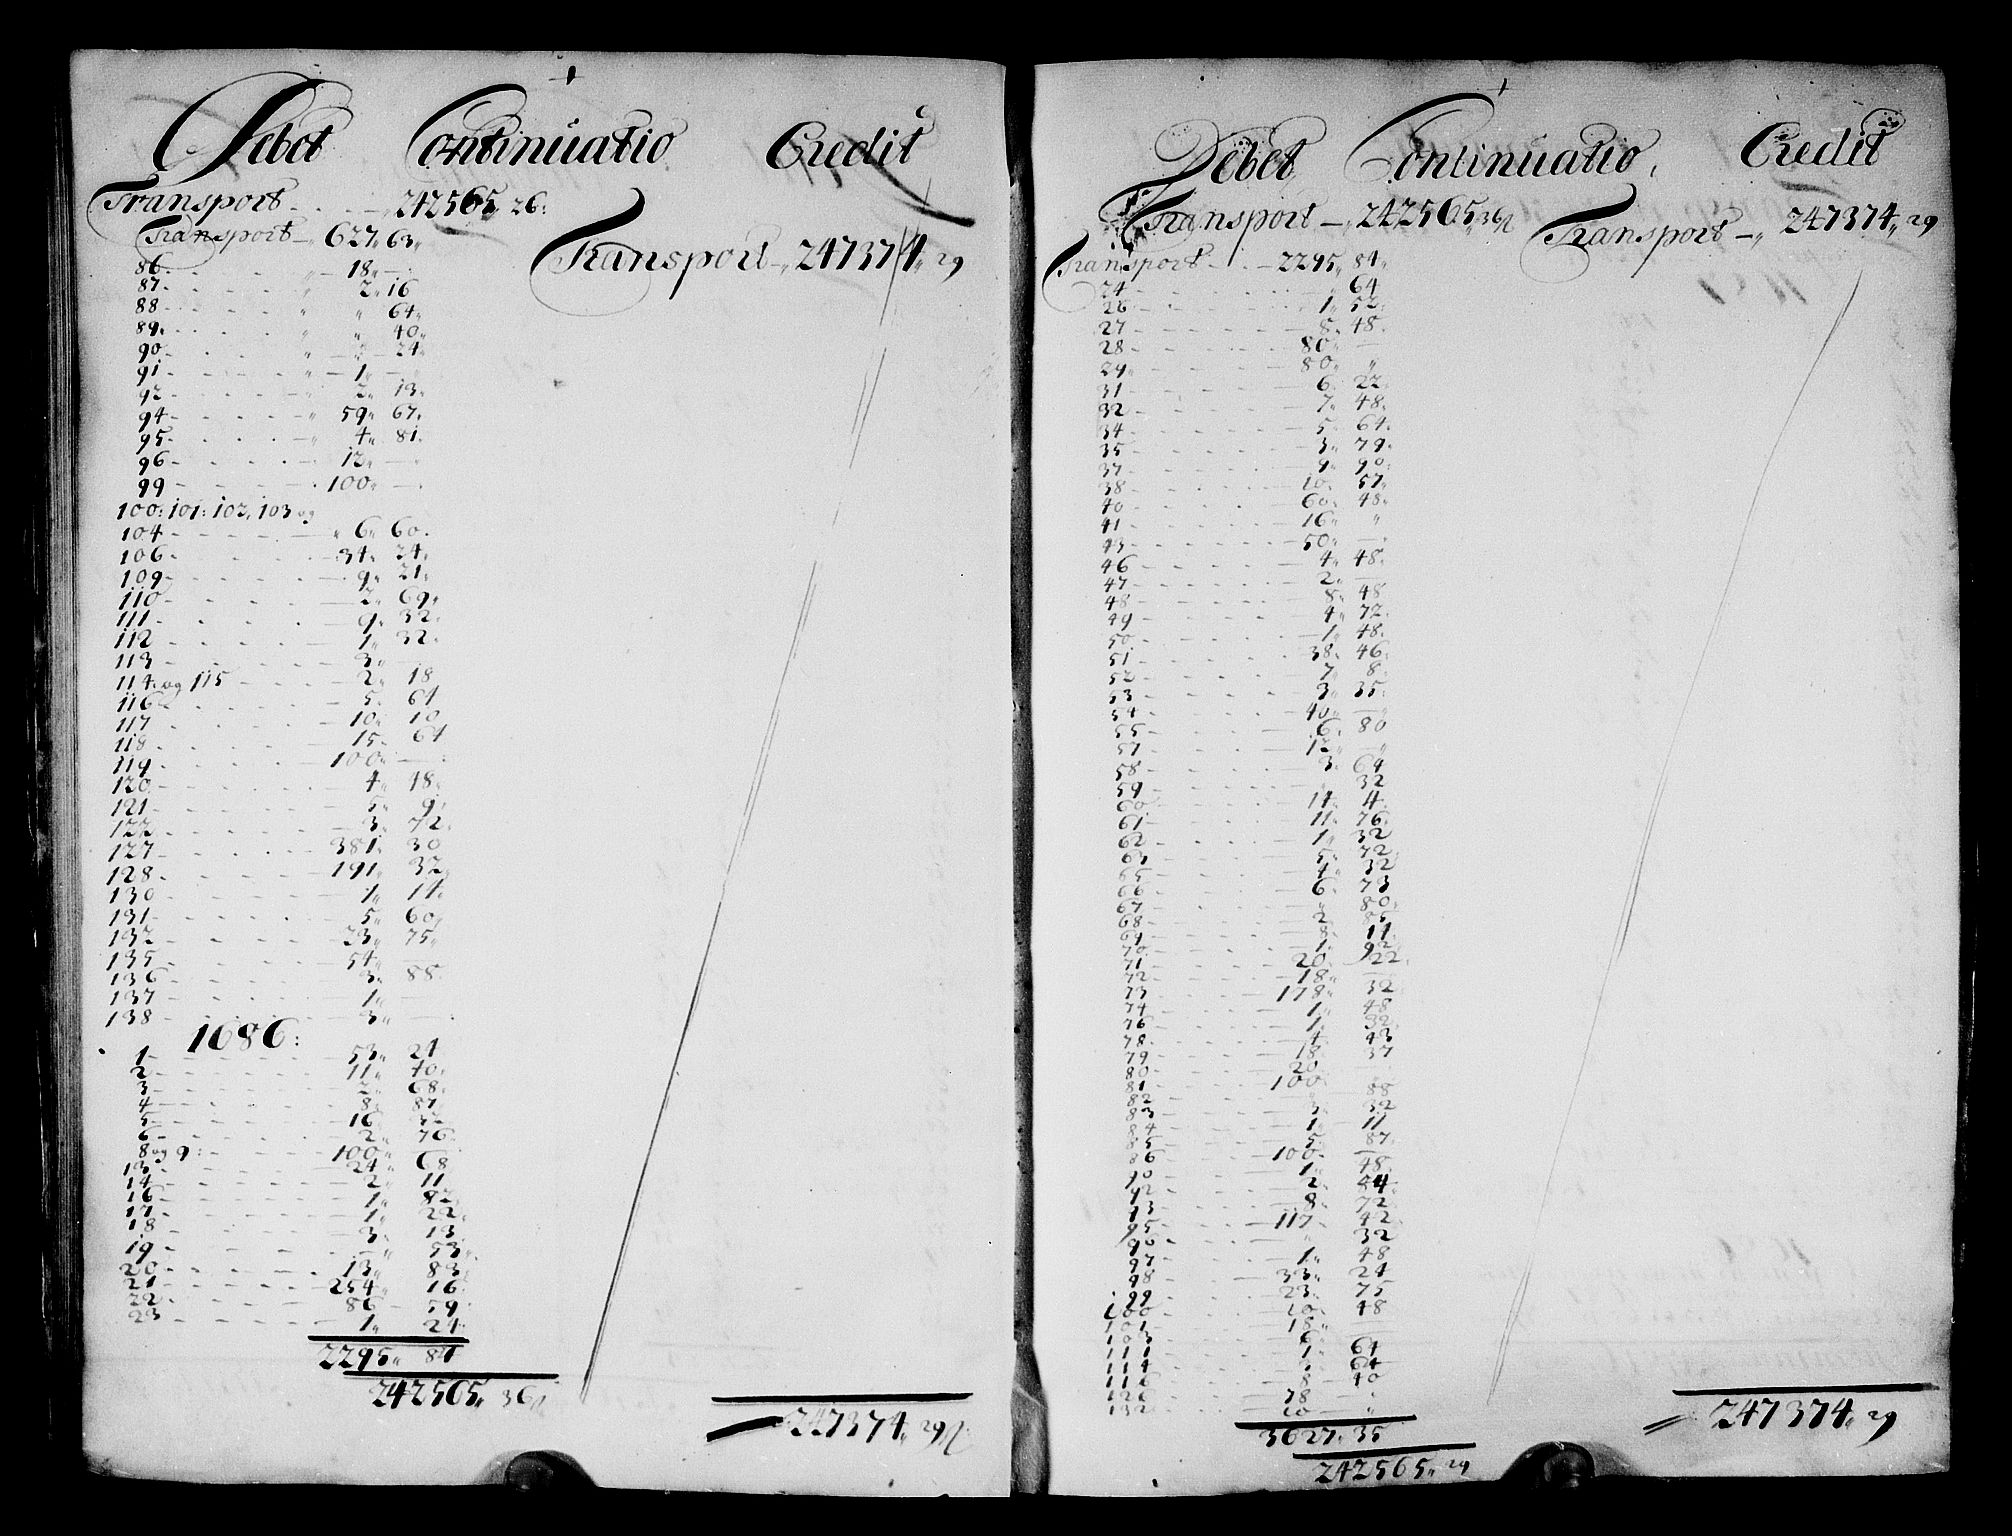 Debet Continuatio Credit
Transport - - - 242565„ 26:
Transport - „ 627„ 63„
Transport - „ 247374„ 29
86 - - - „ 18„ -
87 - - - „ 2„ 16
88 - - - „ „ 64„
89 - - - „ „ 40„
90 - - - „ - „ - 24„
91 - - - „ - 1„ -
92 - - - „ 2„ 13„
94 - - - „ 59„ 67„
95 - - - „ 4„ 81„
96 - - - 12„ -
99 - - - 100„ -
100: 101: 102, 103 og
104 - - - „ 6„ 60„
106 - - - 34„ 24„
109 - - - 9„ 21„
110 - - - 2„ 69„
111 - - - 9„ 32„
112 - - - 1„ 32„
113 - - - 3„ -
114: og 115 - - - 2„ 18„
116 - - - 5„ 64
117 - - - 10„ 10
118 - - - 15„ 64
119 - - - 100„ -
120 - - - 4„ 48„
121 - - - 5„ 9„
122 - - - 3„ 72„
127 - - - 381„ 30
128 - - - 191„ 32„
130 - - - 1„ 14„
131 - - - 5„ 60„
132 - - - 23„ 75„
135 - - - 54„ -
136 - - - 3„ 88„
137 - - - 1„ -
138 - - - 3„ -
1686:
1 - - - 53„ 24
2 - - - 11„ 40„
3 - - - 2„ 68„
4 - - - 8„ 87„
5 - - - 16„ 32„
6 - - - 2„ 76„
8 og 9: - - - 100„ -
13 - - - 24„ 68„
14 - - - 2„ 11„
16 - - - 1„ 82„
17 - - - 1„ 22„
18 - - - 3„ 13„
19 - - - „ 53„
20 - - - 13„ 83„
21 - - - 254„ 16„
22 - - - 86 - 59„
23 - - - 1„ 24„
2295„ 84
242565„ 36
247374„ 29
Debet Continuatio Credit
Transport - „ 242565„ 36
Transport - „ 247374„ 29
Transport - - - 2295„ 84„
24 - - - „ 64
26 - - - 1„ 52„
27 - - - 8„ 48„
28 - - - 80„ -
29 - - - 80„ „
31 - - - 6„ 22„
32 - - - 7„ 48„
34 - - - 5„ 64„
35 - - - 3„ 79„
37 - - - 9„ 90„
38 - - - 10„ 57„
40 - - - 60„ 48„
41 - - - 16„ „
43 - - - 50„ -
46 - - - 4„ 48„
47 - - - 2„ -
48 - - - 8„ 48
49 - - - 4„ 72„
50 - - - 1„ 48„
51 - - - 38„ 46„
52 - - - 7„ 8„
53 - - - 3„ 35„
54 - - - 40„ -
55 - - - 6„ 80
57 - - - 12„ „
58 - - - 3„ 64
59 - - - 32
60 - - - 14„ 4„
61 - - - 11„ 76„
62 - - - 1„ 32
63 - - - 5„ 72„
65 - - - 4„ 32
66 - - - 6„ 73
67 - - - „ 80„
68 - - - 2„ 85
69 - - - 8„ 14
70 - - - 1„ 92
71 - - - 20„ 22„
72 - - - 18„ -
73 - - - 178„ 32
74 - - - 1„ 48
76 - - - 1„ 32„
78 - - - 4„ 43
79 - - - 18„ 37
80 - - - 20
81 - - - 100
82 - - - 88
83 - - - 3„ 32
84 - - - 1„ 11
85 - - - 5„ 87„
86 - - - 100„ -
90 - - - 1„ 48„
92 - - - 2„ 44„
93 - - - 8„ 72„
95 - - - 117„ 42„
96 - - - „ 32
97 - - - 1„ 48
98 - - - 33„ 24
99 - - - 23„ 75
100 - - - 10„ 48
101 - - - 18„
103 - - - 6„ -
111 - - - 1„ 64
114 - - - 64
116 - - - 8 - 40
126 - - - 78 - „
132 - - - 20 - „
3627„ 35
242565„ 29
247374„ 29